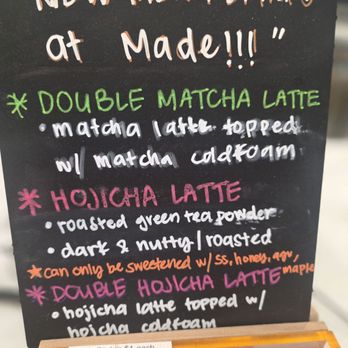 at Made!!!"
* DOUBLE MATCHA LATTE
• matcha latte topped
w/ matcha coldfoam
* HOJICHA LATTE
• roasted green tea powder
• dark & nutty/roasted
★ can only be sweetened w/ SS, honey, agv, maple
* DOUBLE HOJICHA LATTE
• hojicha latte topped w/
hojicha coldfoam